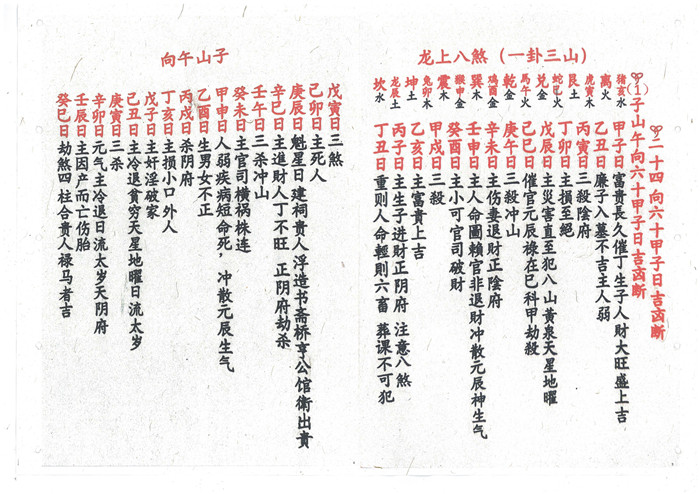 龙上八煞（一卦三山）
二十四向六十甲子日吉凶断
(1)子山午向六十甲子日吉凶断
豬亥水
離火
虎寅木
艮土
蛇巳火
兌金
馬午火
乾金
鸡酉金
巽木
猴申金
震木
兔卯木
坤土
龙辰土
坎水
甲子日富貴長久催丁生子人財大旺盛上吉
乙丑日廉子入墓不吉主人弱
丙寅日三殺陰府
丁卯日主損至絕
戊辰日主災害直至犯八山黃泉天星地曜
己巳日催官元辰祿在巳科甲劫殺
庚午日三殺冲山
辛未日主伤妻退財正陰府
壬申日主人命圖賴官非退財冲散元辰神生气
癸酉日主小可官司破財
甲戌日三殺
乙亥日主富貴上吉
丙子日主生子进財正阴府 注意八煞
丁丑日重则人命輕則六畜 葬课不可犯
向午山子
戊寅日三煞
己卯日主死人
庚辰日魁星日建祠貴人浮造书斋桥亨公馆衛出貴
辛巳日主進財人丁不旺 正阴府劫杀
壬午日三杀冲山
癸未日主官司横祸株连
甲申日人弱疾病短命死，冲散元辰生气
乙酉日生男女不正
丙戌日杀阴府
丁亥日主损小口外人
戊子日主奸淫破家
己丑日主冷退贫穷天星地曜日流太岁
庚寅日三杀
辛卯日元气主冷退日流太岁天阴府
壬辰日主因产而亡伤胎
癸巳日劫煞四柱合贵人禄马者吉